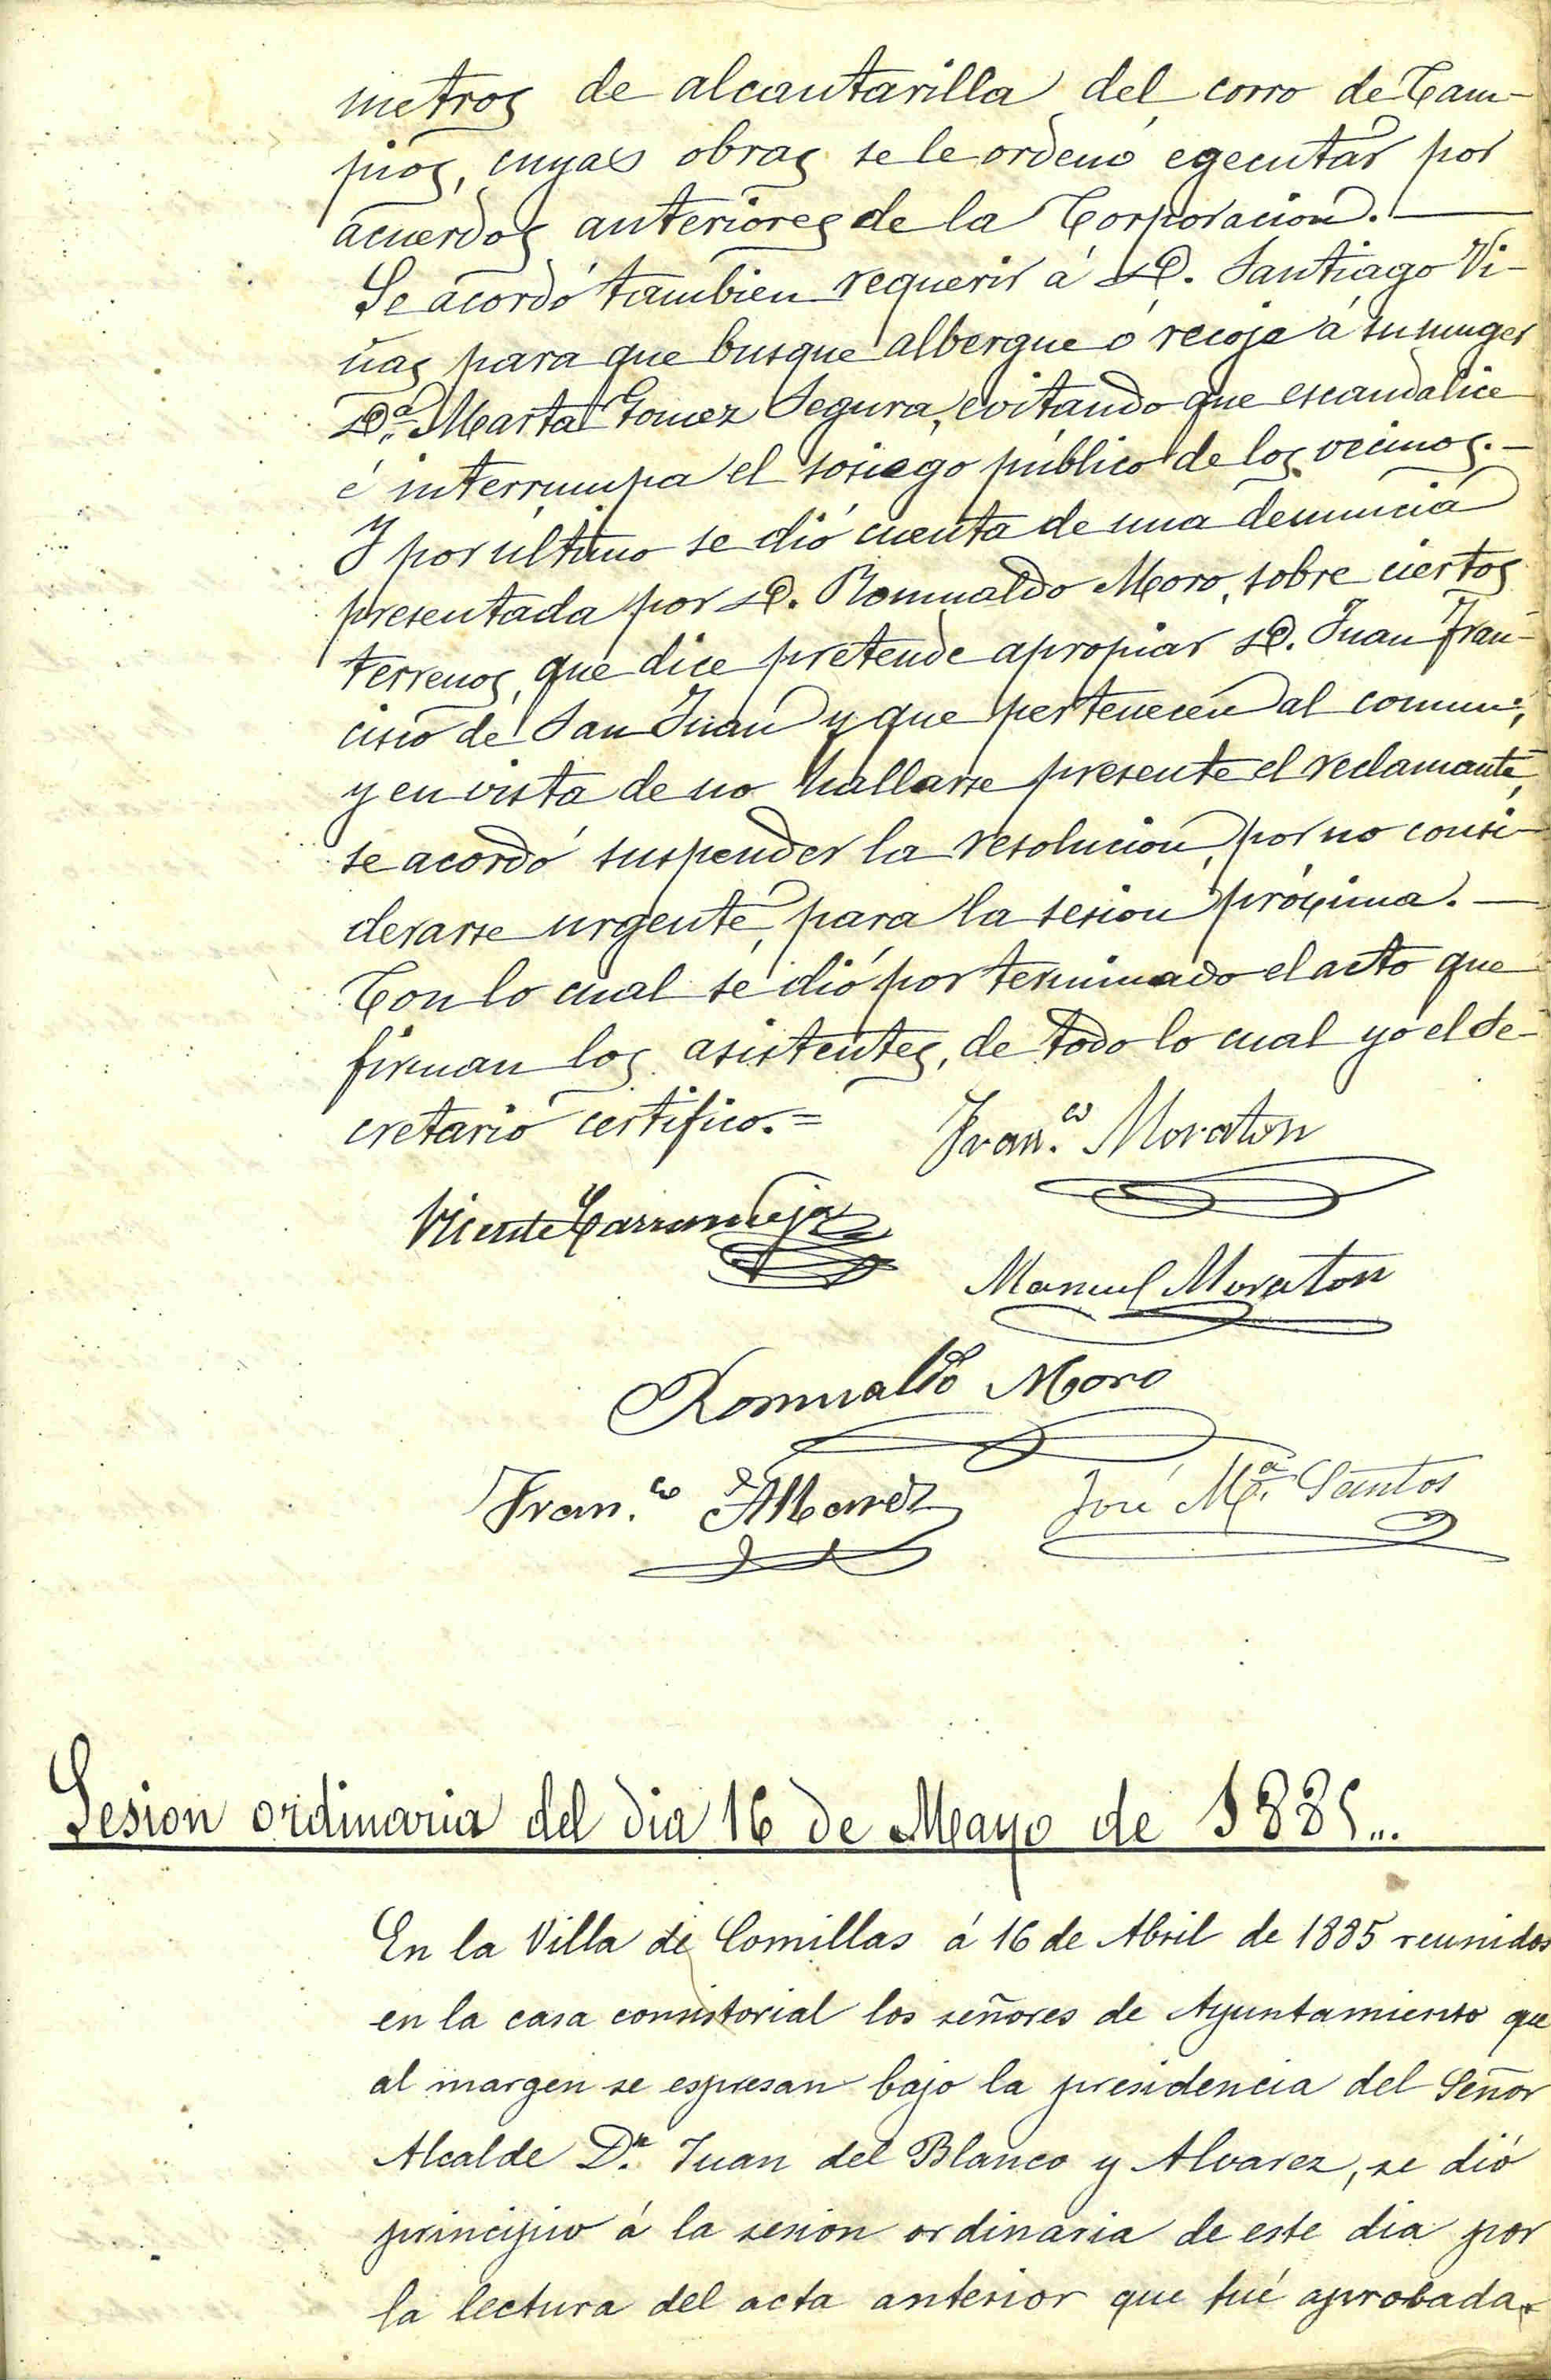 metros de alcantarilla del corro de Cam-
pios, cuyas obras se le ordenó egecutar por
acuerdos anteriores de la Corporacion. —
Se acordó tambien requerir á D. Santiago Vi-
ñas para que busque albergue ó recoja á su muger
D.ª Marta Gomez Segura, evitando que escandalice
é interrumpa el sosiego público de los vecinos. —
Y por último se dió cuenta de una denuncia
presentada por D. Romualdo Moro, sobre ciertos
terrenos, que dice pretende apropiar D. Juan Fran-
cisco de San Juan y que pertenecen al comun;
y en vista de no hallarse presente el reclamante,
se acordó suspender la resolucion, por no consi-
derarse urgente, para la sesion próxima. —
Con lo cual se dió por terminado el acto que
firman los asistentes, de todo lo cual yo el Se-
cretario certifico. =
Fran.co Moraton
Vicente Carrandeja
Manuel Moraton
Romualdo Moro
Fran.co Alvarez
José M.ª Santos
Sesion ordinaria del dia 16 de Mayo de 1885...
En la Villa de Comillas á 16 de Abril de 1885 reunidos
en la casa consistorial los señores de Ayuntamiento que
al margen se espresan bajo la presidencia del Señor
Alcalde D.n Juan del Blanco y Alvarez, se dió
principio á la sesion ordinaria de este dia por
la lectura del acta anterior que fué aprobada.